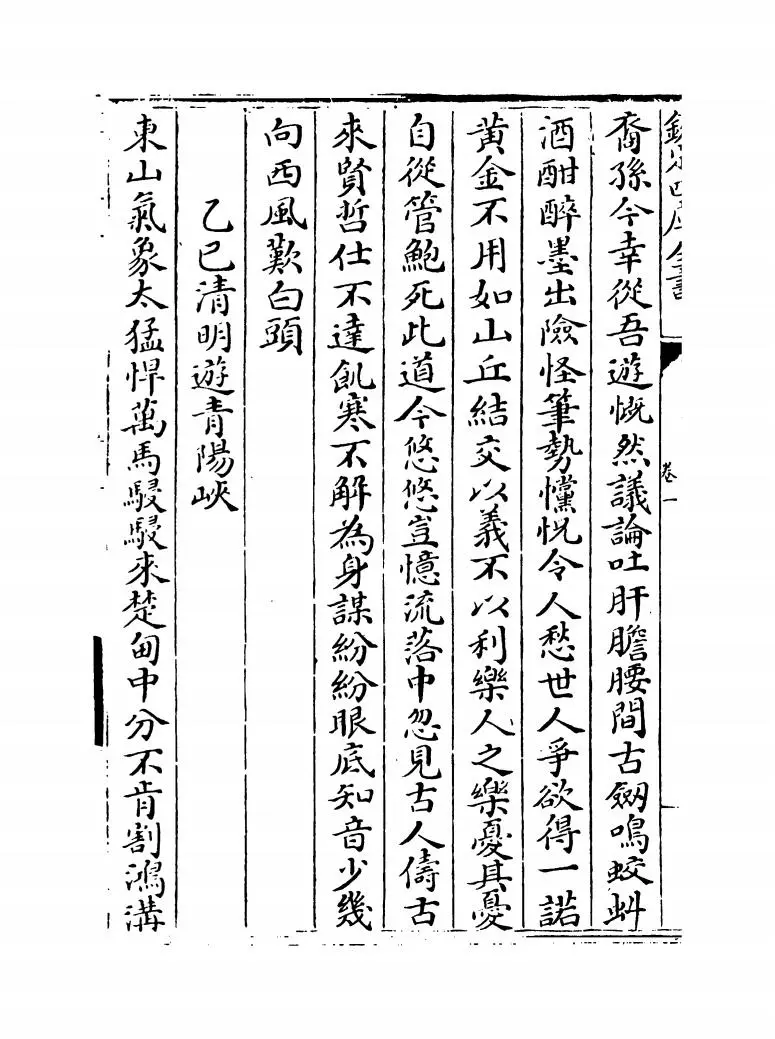 欽定四庫全書
卷一
裔孫今幸從吾遊慨然議論吐肝膽腰間古劔鳴蛟虯
酒酣醉墨出險怪筆勢戃怳令人愁世人爭欲得一諾
黃金不用如山丘結交以義不以利樂人之樂憂其憂
自從管鮑死此道今悠悠豈憶流落中忽見古人儔古
來賢哲仕不達飢寒不解為身謀紛紛眼底知音少幾
向西風歎白頭
乙巳清明遊青陽峽
東山氣象太猛悍萬馬駸駸來楚甸中分不肯割鴻溝